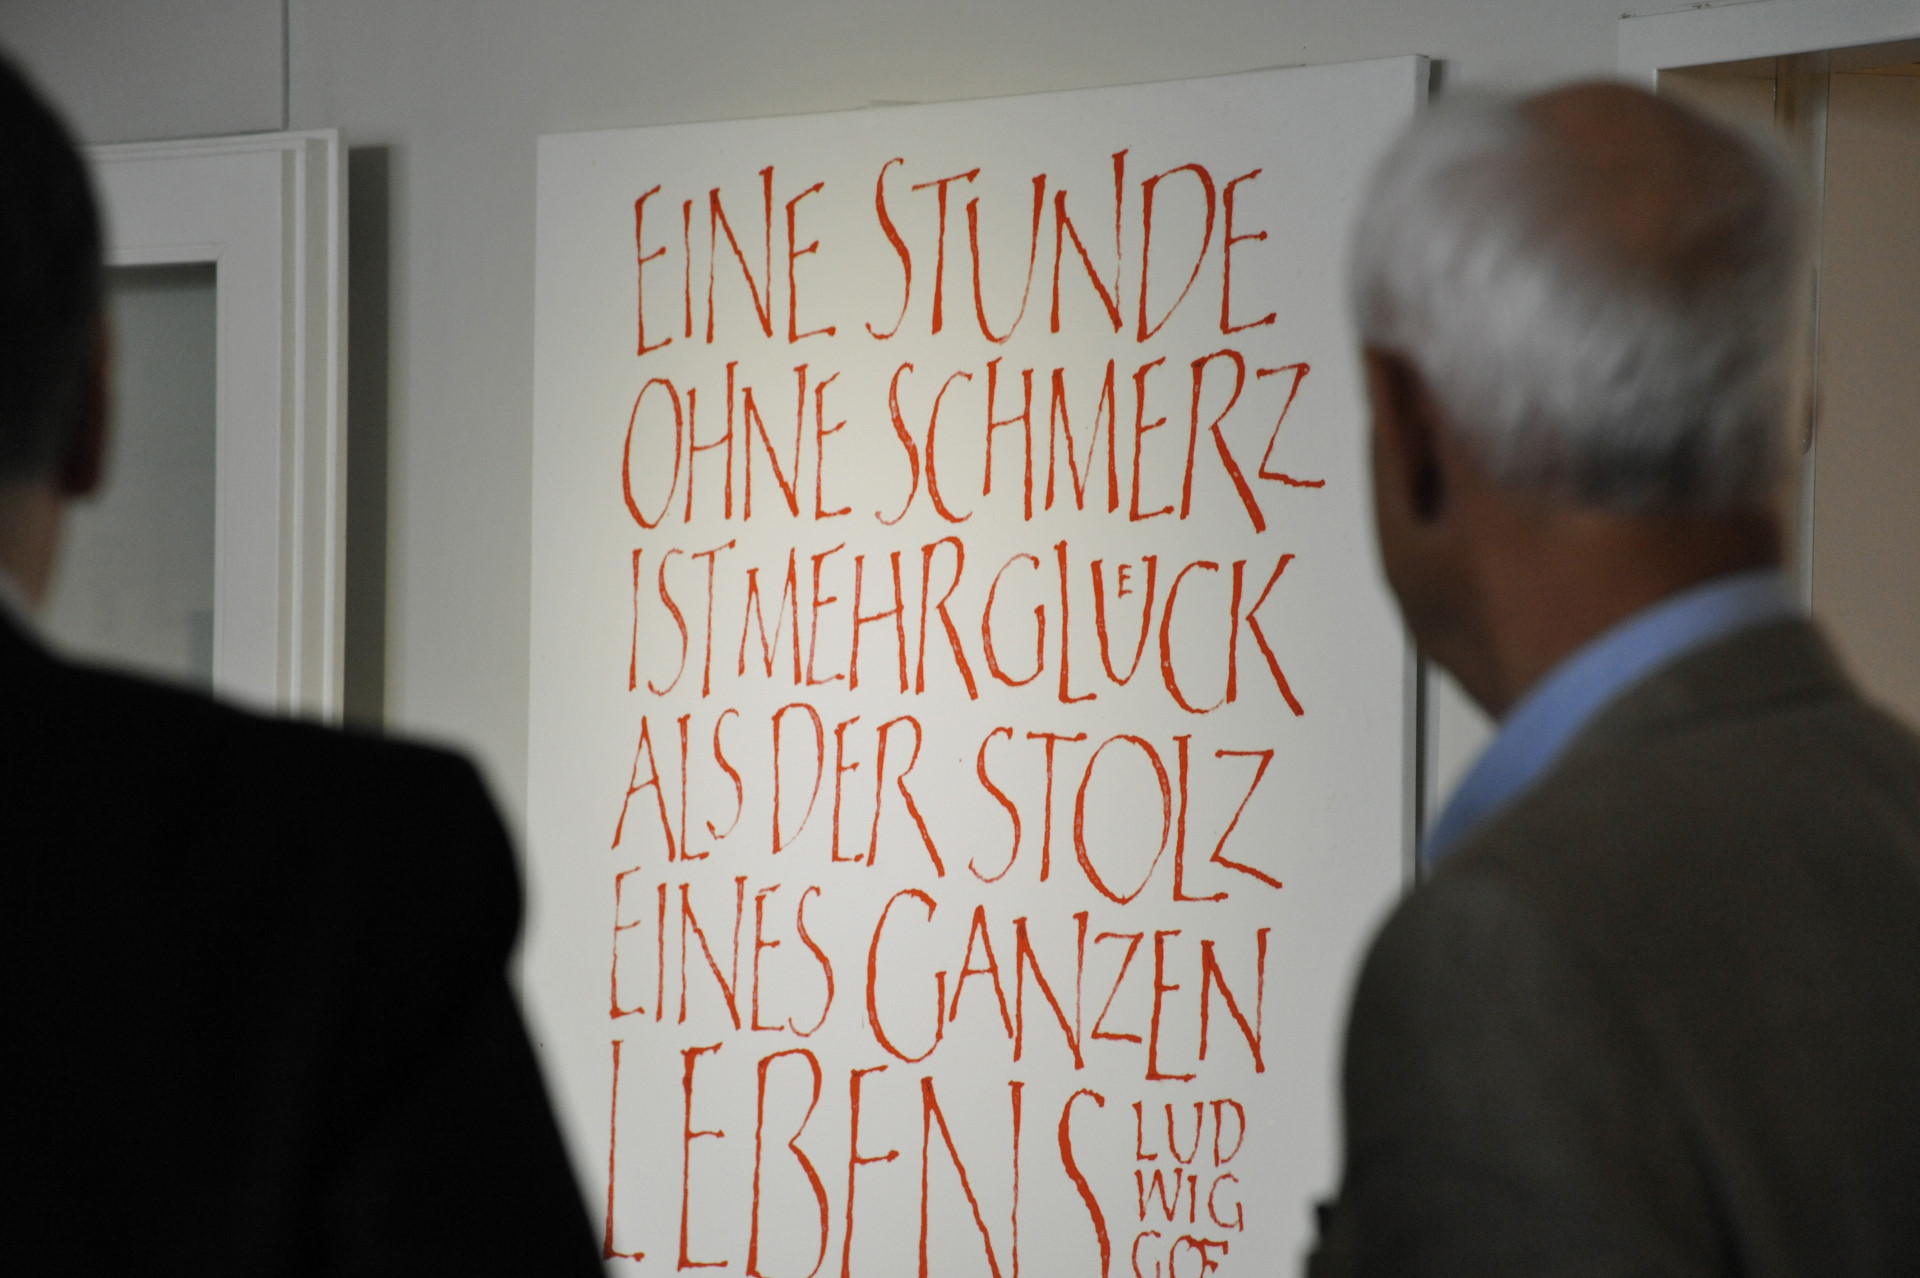 EINE STUNDE
OHNE SCHMERZ
IST MEHR GLUECK
ALS DER STOLZ
EINES GANZEN
LEBENS
LUD
WIG
GOE